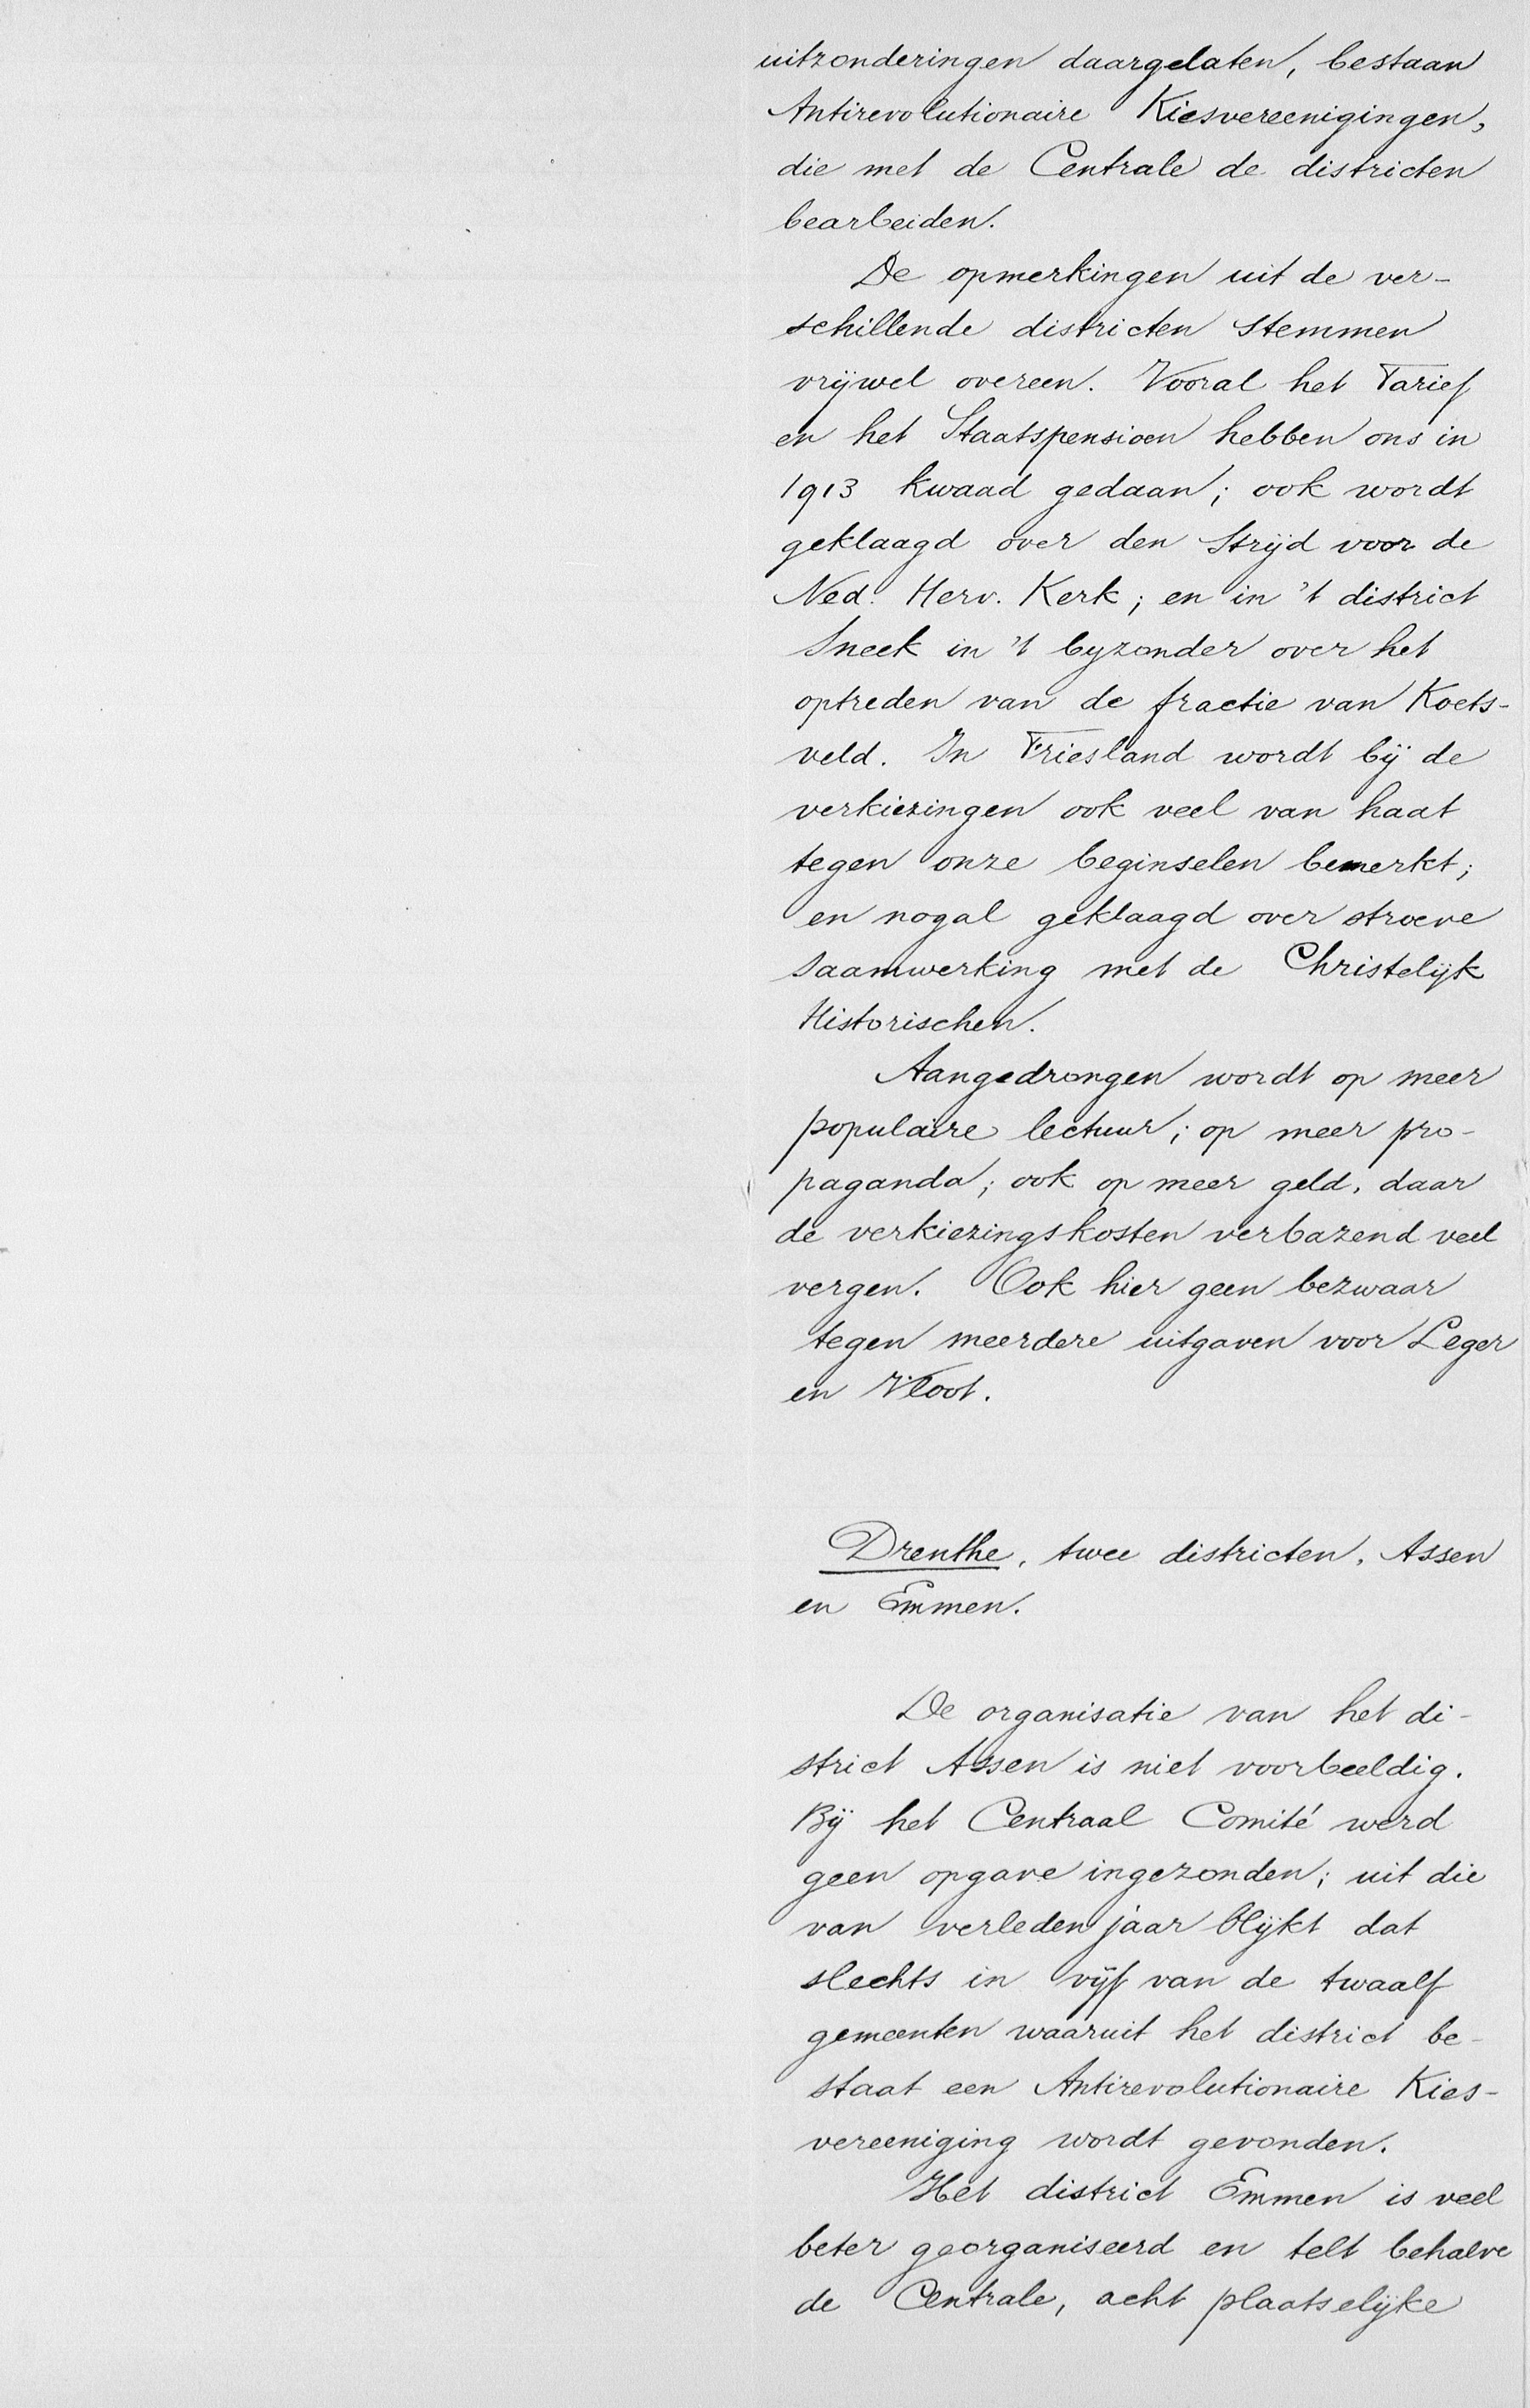 uitzonderingen daargelaten, bestaan
Antirevolutionaire Kiesvereenigingen,
die met de Centrale de districten
bearbeiden.
De opmerkingen uit de ver-
schillende districten stemmen
vrijwel overeen. Vooral het Tarief
en het Staatspensioen hebben ons in
1913 kwaad gedaan; ook wordt
geklaagd over den Strijd voor de
Ned. Herv. Kerk; en in 't district
Sneek in 't byzonder over het
optreden van de fractie van Koets-
veld. In Friesland wordt bij de
verkiezingen ook veel van haat
tegen onze beginselen bemerkt;
en nogal geklaagd over stroeve
saamwerking met de Christelijk
Historischen.
Aangedrongen wordt op meer
populaire lectuur; op meer pro-
paganda; ook op meer geld, daar
de verkiezingskosten verbazend veel
vergen. Ook hier geen bezwaar
tegen meerdere uitgaven voor Leger
en Vloot.
Drenthe, twee districten, Assen
en Emmen.
De organisatie van het di-
strict Assen is niet voorbeeldig.
Bij het Centraal Comité werd
geen opgave ingezonden; uit die
van verleden jaar blijkt dat
slechts in vijf van de twaalf
gemeenten waaruit het district be-
staat een Antirevolutionaire Kies-
vereeniging wordt gevonden.
Het district Emmen is veel
beter georganiseerd en telt behalve
de Centrale, acht plaatselijke